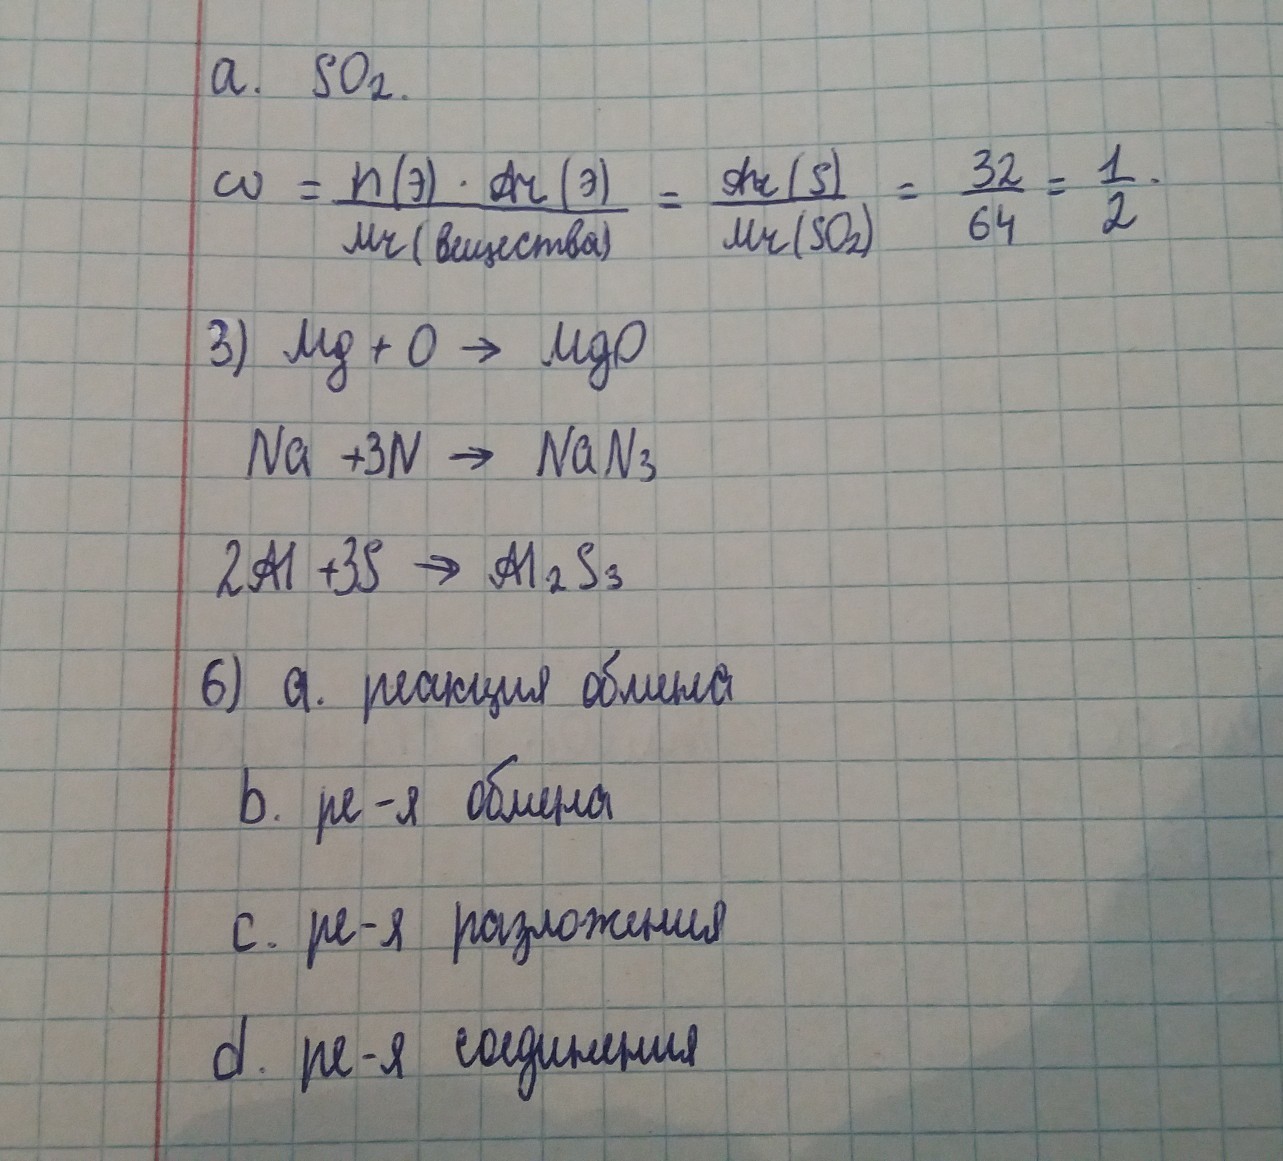 a. SO₂.
ω = n(Э) · Ar(Э) / Mr(вещества) = Ar(S) / Mr(SO₂) = 32 / 64 = 1 / 2.
3) Mg + O → MgO
Na +3N → NaN₃
2Al +3S → Al₂S₃
6) a. реакция обмена
b. ре-я обмена
c. ре-я разложения
d. ре-я соединения